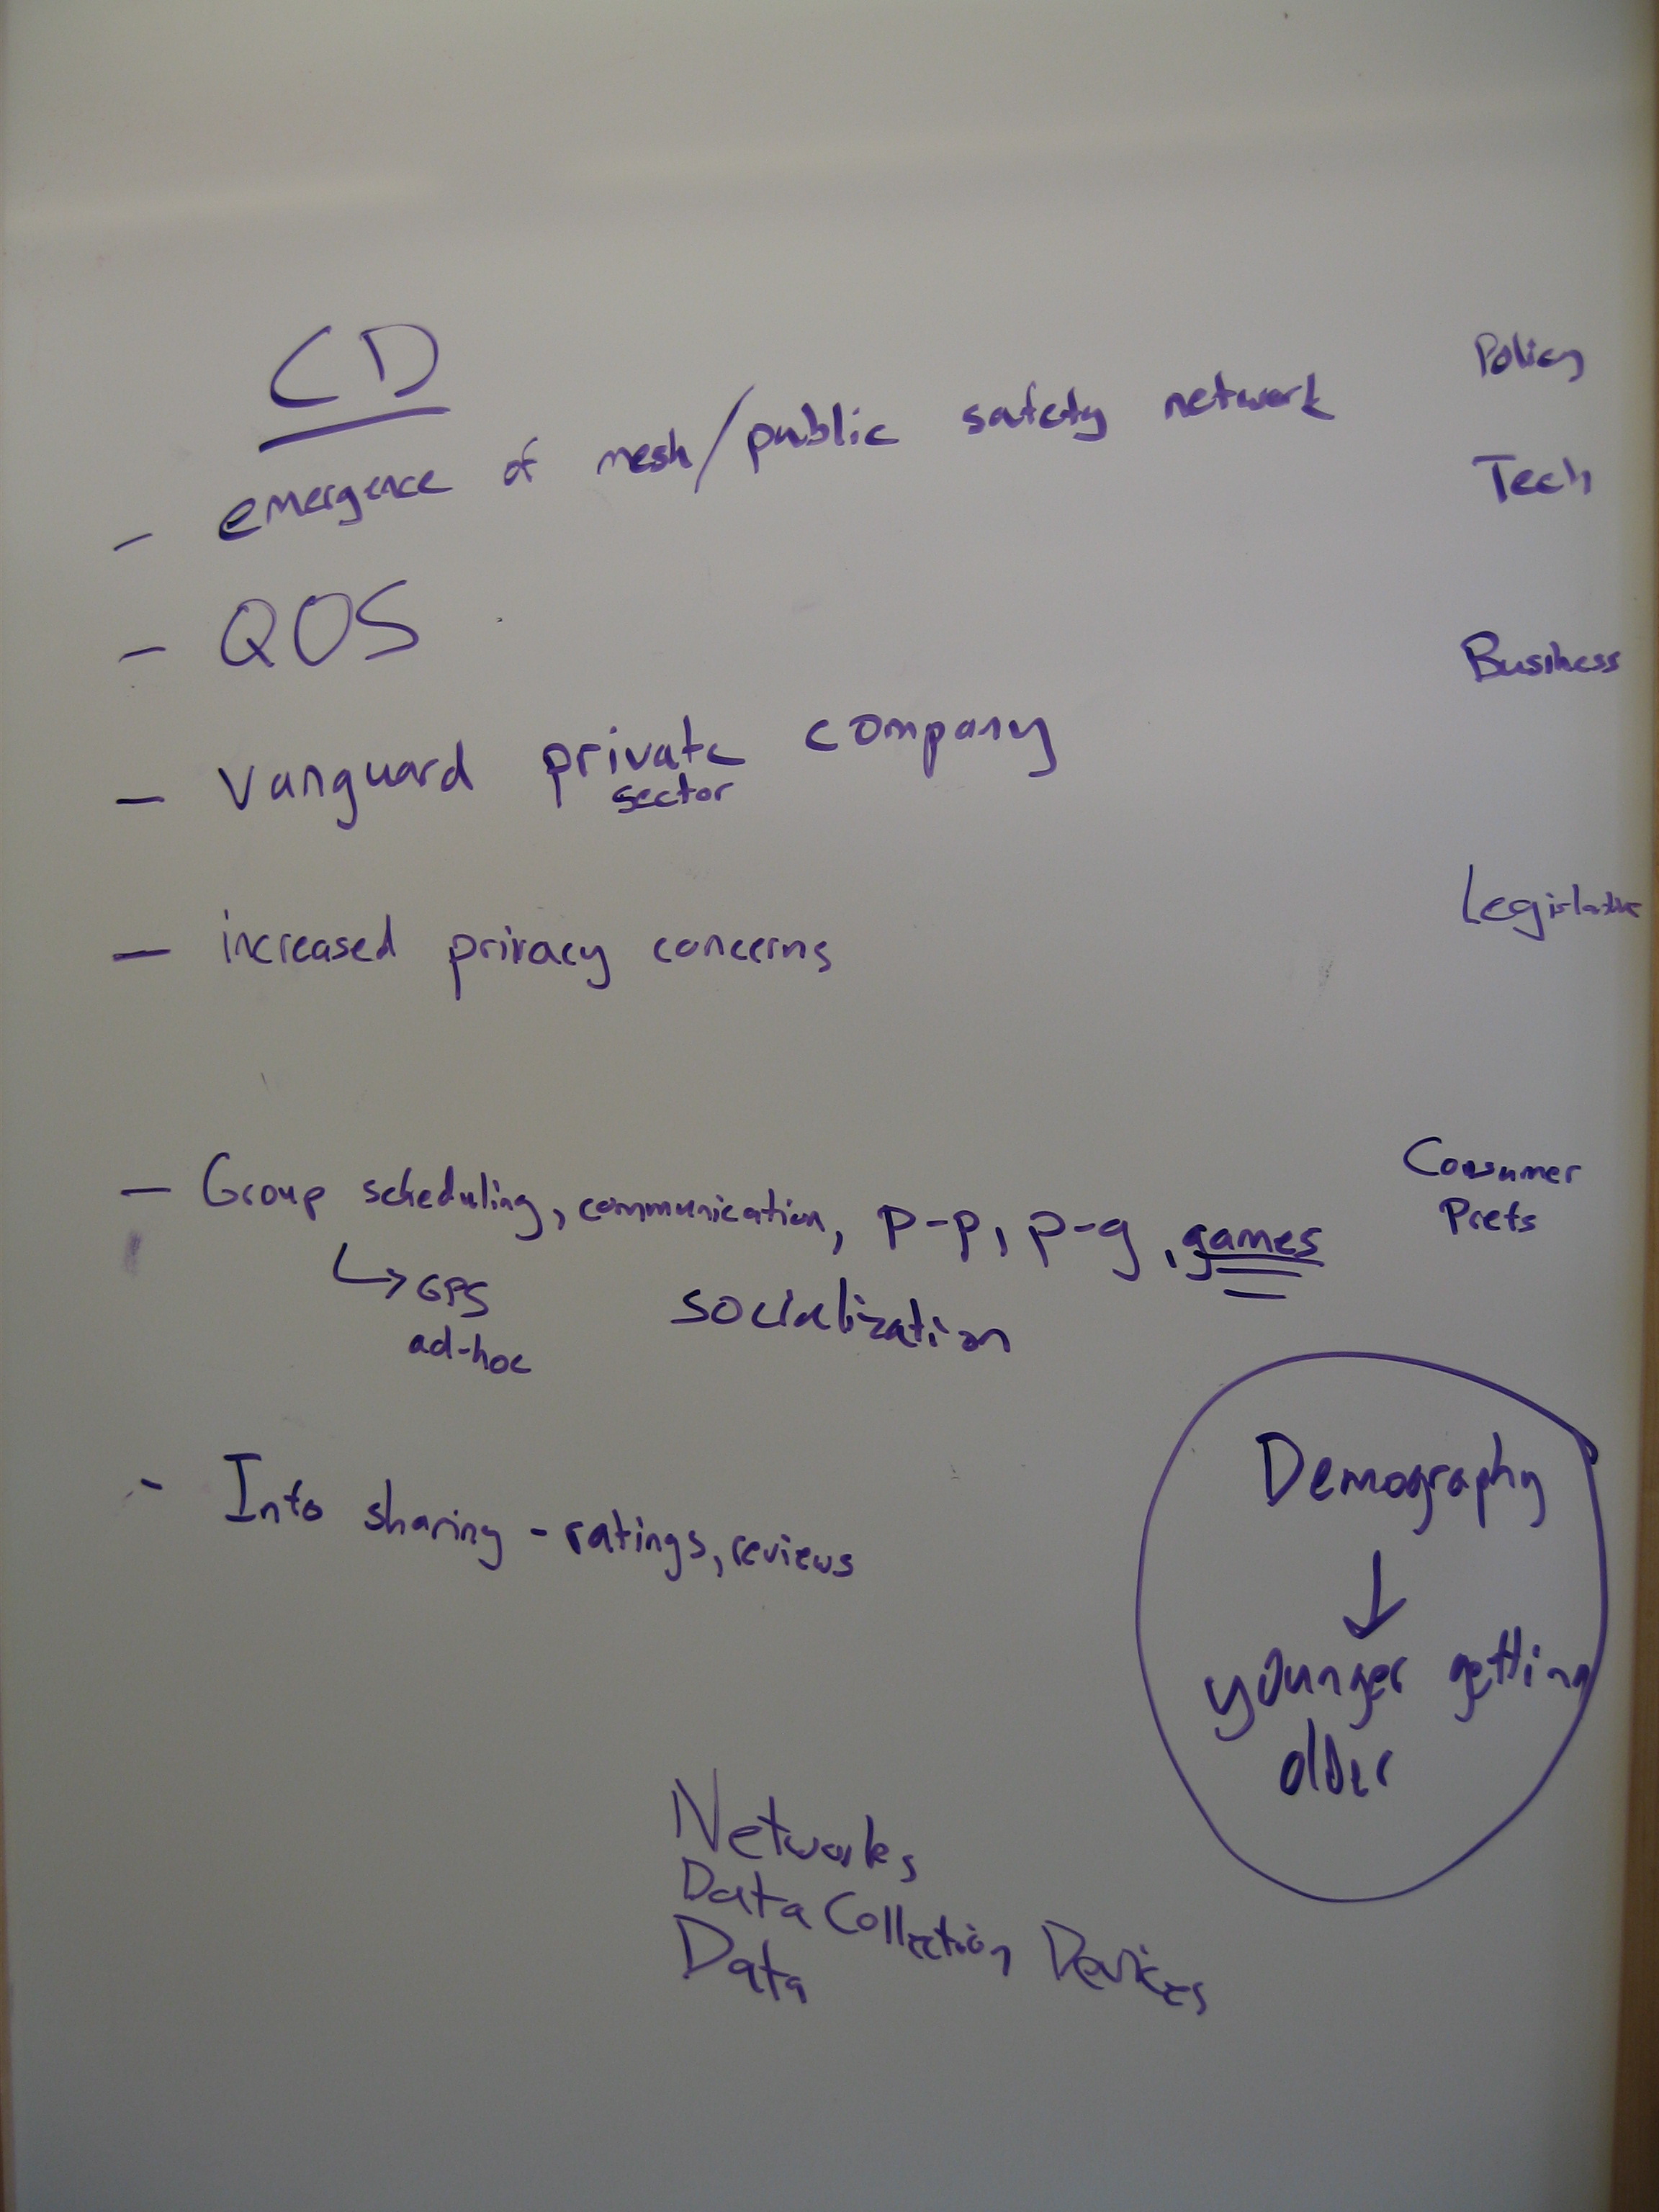 CD
Policy
- emergence of mesh/public safety network
Tech
- QOS
Business
- Vanguard private company
sector
Legislative
- increased privacy concerns
Consumer
Prefs
- Group scheduling, communication, p-p, p-g, games
↳ GPS
ad-hoc
socialization
- Info sharing - ratings, reviews
Demography
↓
younger getting
older
Networks
Data Collection Devices
Data